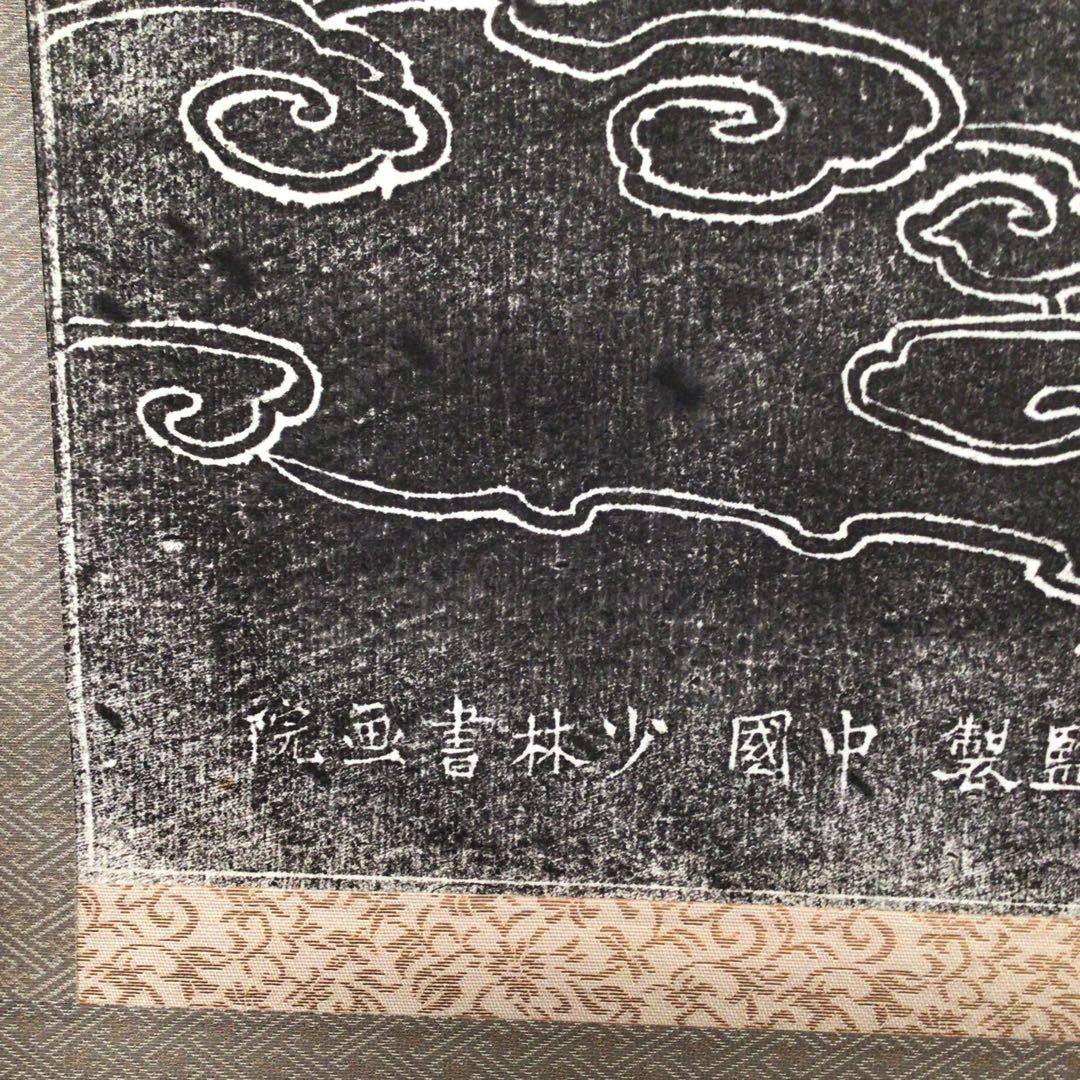 監製 中國 少林書画院